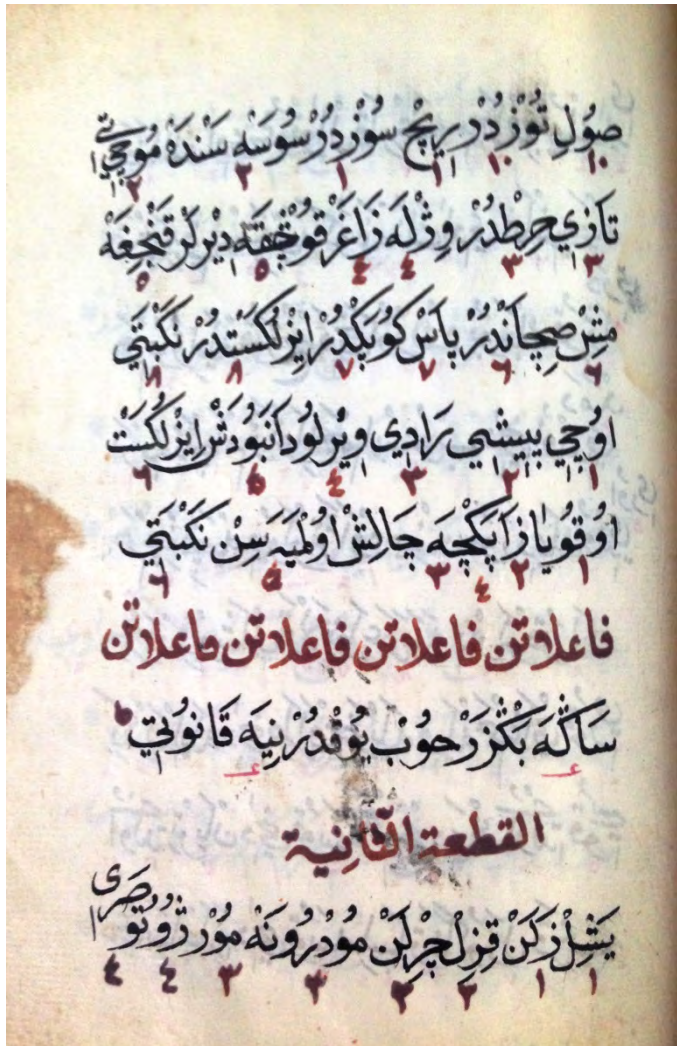 صُولِ تُوزْ دُرْ رِيچْ سُوزْ دُرْ سُوسَهْ سَنْدَهْ مُوچَتِي
١٠ ١٠ ١١ ١ ٢ ٢
تَازِي حِرْطْدُرْ وِژْلَهْ زَاغَرْ قُوْچْقَهْ دِيْرلَرْ قَنْجِغَهْ
٣ ٣ ٤ ٤ ٥ ٥
مِشْ صِچَانْدُرْ پَاسْ كُوپَكْدُرْ اِيزْلُكَسْتْدُرْ نَكْبَتِي
٦ ٦ ٧ ٧ ٨ ٨
اوُچِي پِيشِي رَادِي وِيْرلُو دَانَبُودَشْ اِيزْلُكَسْتْ
١ ٢ ٣ ٤ ٥ ٦
اوُقُو يَازْ آپَكْچَهْ چَالِشْ اوُلْمَيَهسِنْ نَكْبَتِي
١ ٢ ٤ ٣ ٥ ٦
فاعلاتن فاعلاتن فاعلاتن فاعلاتن
سَاڭَهْ بَڭْزَرْ حُوبْ يُوقْدُرْ نِيَهْ قَانُوتِي
القطعة الثانية
يَشِلْ زَلَنْ قِزِلْ چِرْلَنْ مُودْرُو نَهْ مُورْ ژُوتُو صَرِى
١ ١ ٢ ٢ ٣ ٣ ٤ ٤